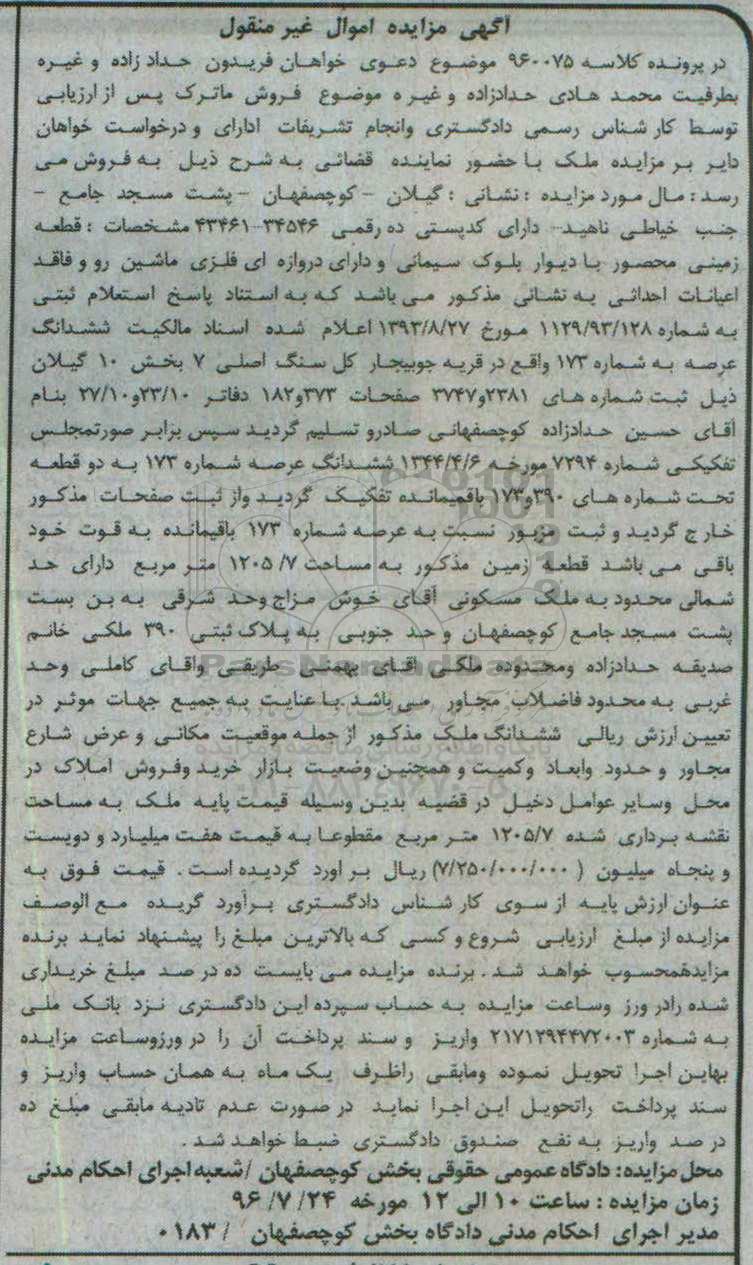 آگهی مزایده اموال غیر منقول
در پرونده کلاسه ۹۶۰۰۷۵ موضوع دعوی خواهان فریدون حداد زاده و غیره
بطرفیت محمد هادی حدادزاده و غیر ه موضوع فروش ماترک پس از ارزیابی
توسط کار شناس رسمی دادگستری وانجام تشریفات ادارای و درخواست خواهان
دایر بر مزایده ملک با حضور نماینده قضائی به شرح ذیل به فروش می
رسد : مال مورد مزایده : نشانی : گیلان - کوچصفهان - پشت مسجد جامع -
جنب خیاطی ناهید- دارای کدپستی ده رقمی ۳۴۵۴۶-۴۳۴۶۱ مشخصات : قطعه
زمینی محصور با دیوار بلوک سیمانی و دارای دروازه ای فلزی ماشین رو و فاقد
اعیانات احداثی به نشانی مذکور می باشد که به استناد پاسخ استعلام ثبتی
به شماره ۱۱۲۹/۹۳/۱۲۸ مورخ ۱۳۹۳/۸/۲۷ اعلام شده اسناد مالکیت ششدانگ
عرصه به شماره ۱۷۳ واقع در قریه جوبیجار کل سنگ اصلی ۷ بخش ۱۰ گیلان
ذیل ثبت شماره های ۲۳۸۱و۳۷۴۷ صفحات ۳۷۳و۱۸۲ دفاتر ۲۳/۱۰و۲۷/۱۰ بنام
آقای حسین حدادزاده کوچصفهانی صادرو تسلیم گردید سپس برابر صورتمجلس
تفکیکی شماره ۷۲۹۴ مورخه ۱۳۴۴/۴/۶ ششدانگ عرصه شماره ۱۷۳ به دو قطعه
تحت شماره های ۳۹۰و۱۷۳ باقیمانده تفکیک گردید واز ثبت صفحات مذکور
خار ج گردید و ثبت مزبور نسبت به عرصه شماره ۱۷۳ باقیمانده به قوت خود
باقی می باشد قطعه زمین مذکور به مساحت ۱۲۰۵/۷ متر مربع دارای حد
شمالی محدود به ملک مسکونی آقای خوش مزاج وحد شرقی به بن بست
پشت مسجد جامع کوچصفهان و حد جنوبی به پلاک ثبتی ۳۹۰ ملکی خانم
صدیقه حدادزاده ومحدوده ملکی اقای بهمنی طریقی واقای کاملی وحد
غربی به محدود فاضلاب مجاور می باشد .با عنایت به جمیع جهات موثر در
تعیین ارزش ریالی ششدانگ ملک مذکور از جمله موقعیت مکانی و عرض شارع
مجاور و حدود وابعاد وکمیت و همچنین وضعیت بازار خرید وفروش املاک در
محل وسایر عوامل دخیل در قضیه بدین وسیله قیمت پایه ملک به مساحت
نقشه برداری شده ۱۲۰۵/۷ متر مربع مقطوعا به قیمت هفت میلیارد و دویست
و پنجاه میلیون ( ۷/۲۵۰/۰۰۰/۰۰۰) ریال بر اورد گردیده است . قیمت فوق به
عنوان ارزش پایه از سوی کار شناس دادگستری برآورد گریده مع الوصف
مزایده از مبلغ ارزیابی شروع و کسی که بالاترین مبلغ را پیشنهاد نماید برنده
مزایدهمحسوب خواهد شد . برنده مزایده می بایست ده در صد مبلغ خریداری
شده رادر ورز وساعت مزایده به حساب سپرده این دادگستری نزد بانک ملی
به شماره ۲۱۷۱۲۹۴۴۷۲۰۰۳ واریز و سند پرداخت آن را در ورزوساعت مزایده
بهاین اجرا تحویل نموده ومابقی راظرف یک ماه به همان حساب واریز و
سند پرداخت راتحویل این اجرا نماید در صورت عدم تادیه مابقی مبلغ ده
در صد واریز به نفع صندوق دادگستری ضبط خواهد شد .
محل مزایده: دادگاه عمومی حقوقی بخش کوچصفهان /شعبه اجرای احکام مدنی
زمان مزایده : ساعت ۱۰ الی ۱۲ مورخه ۹۶/۷/۲۴
مدیر اجرای احکام مدنی دادگاه بخش کوچصفهان / ۰۱۸۳
ParsNamadData